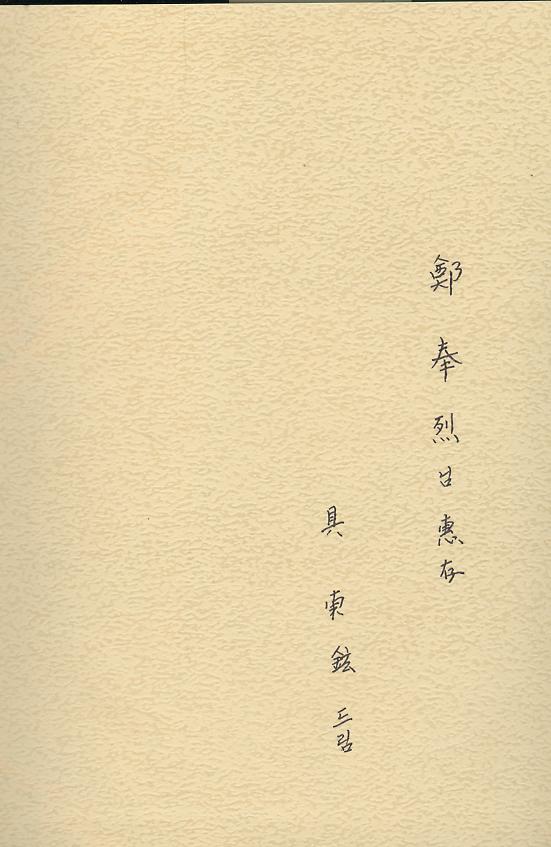 鄭奉烈님惠存
具東鉉드림